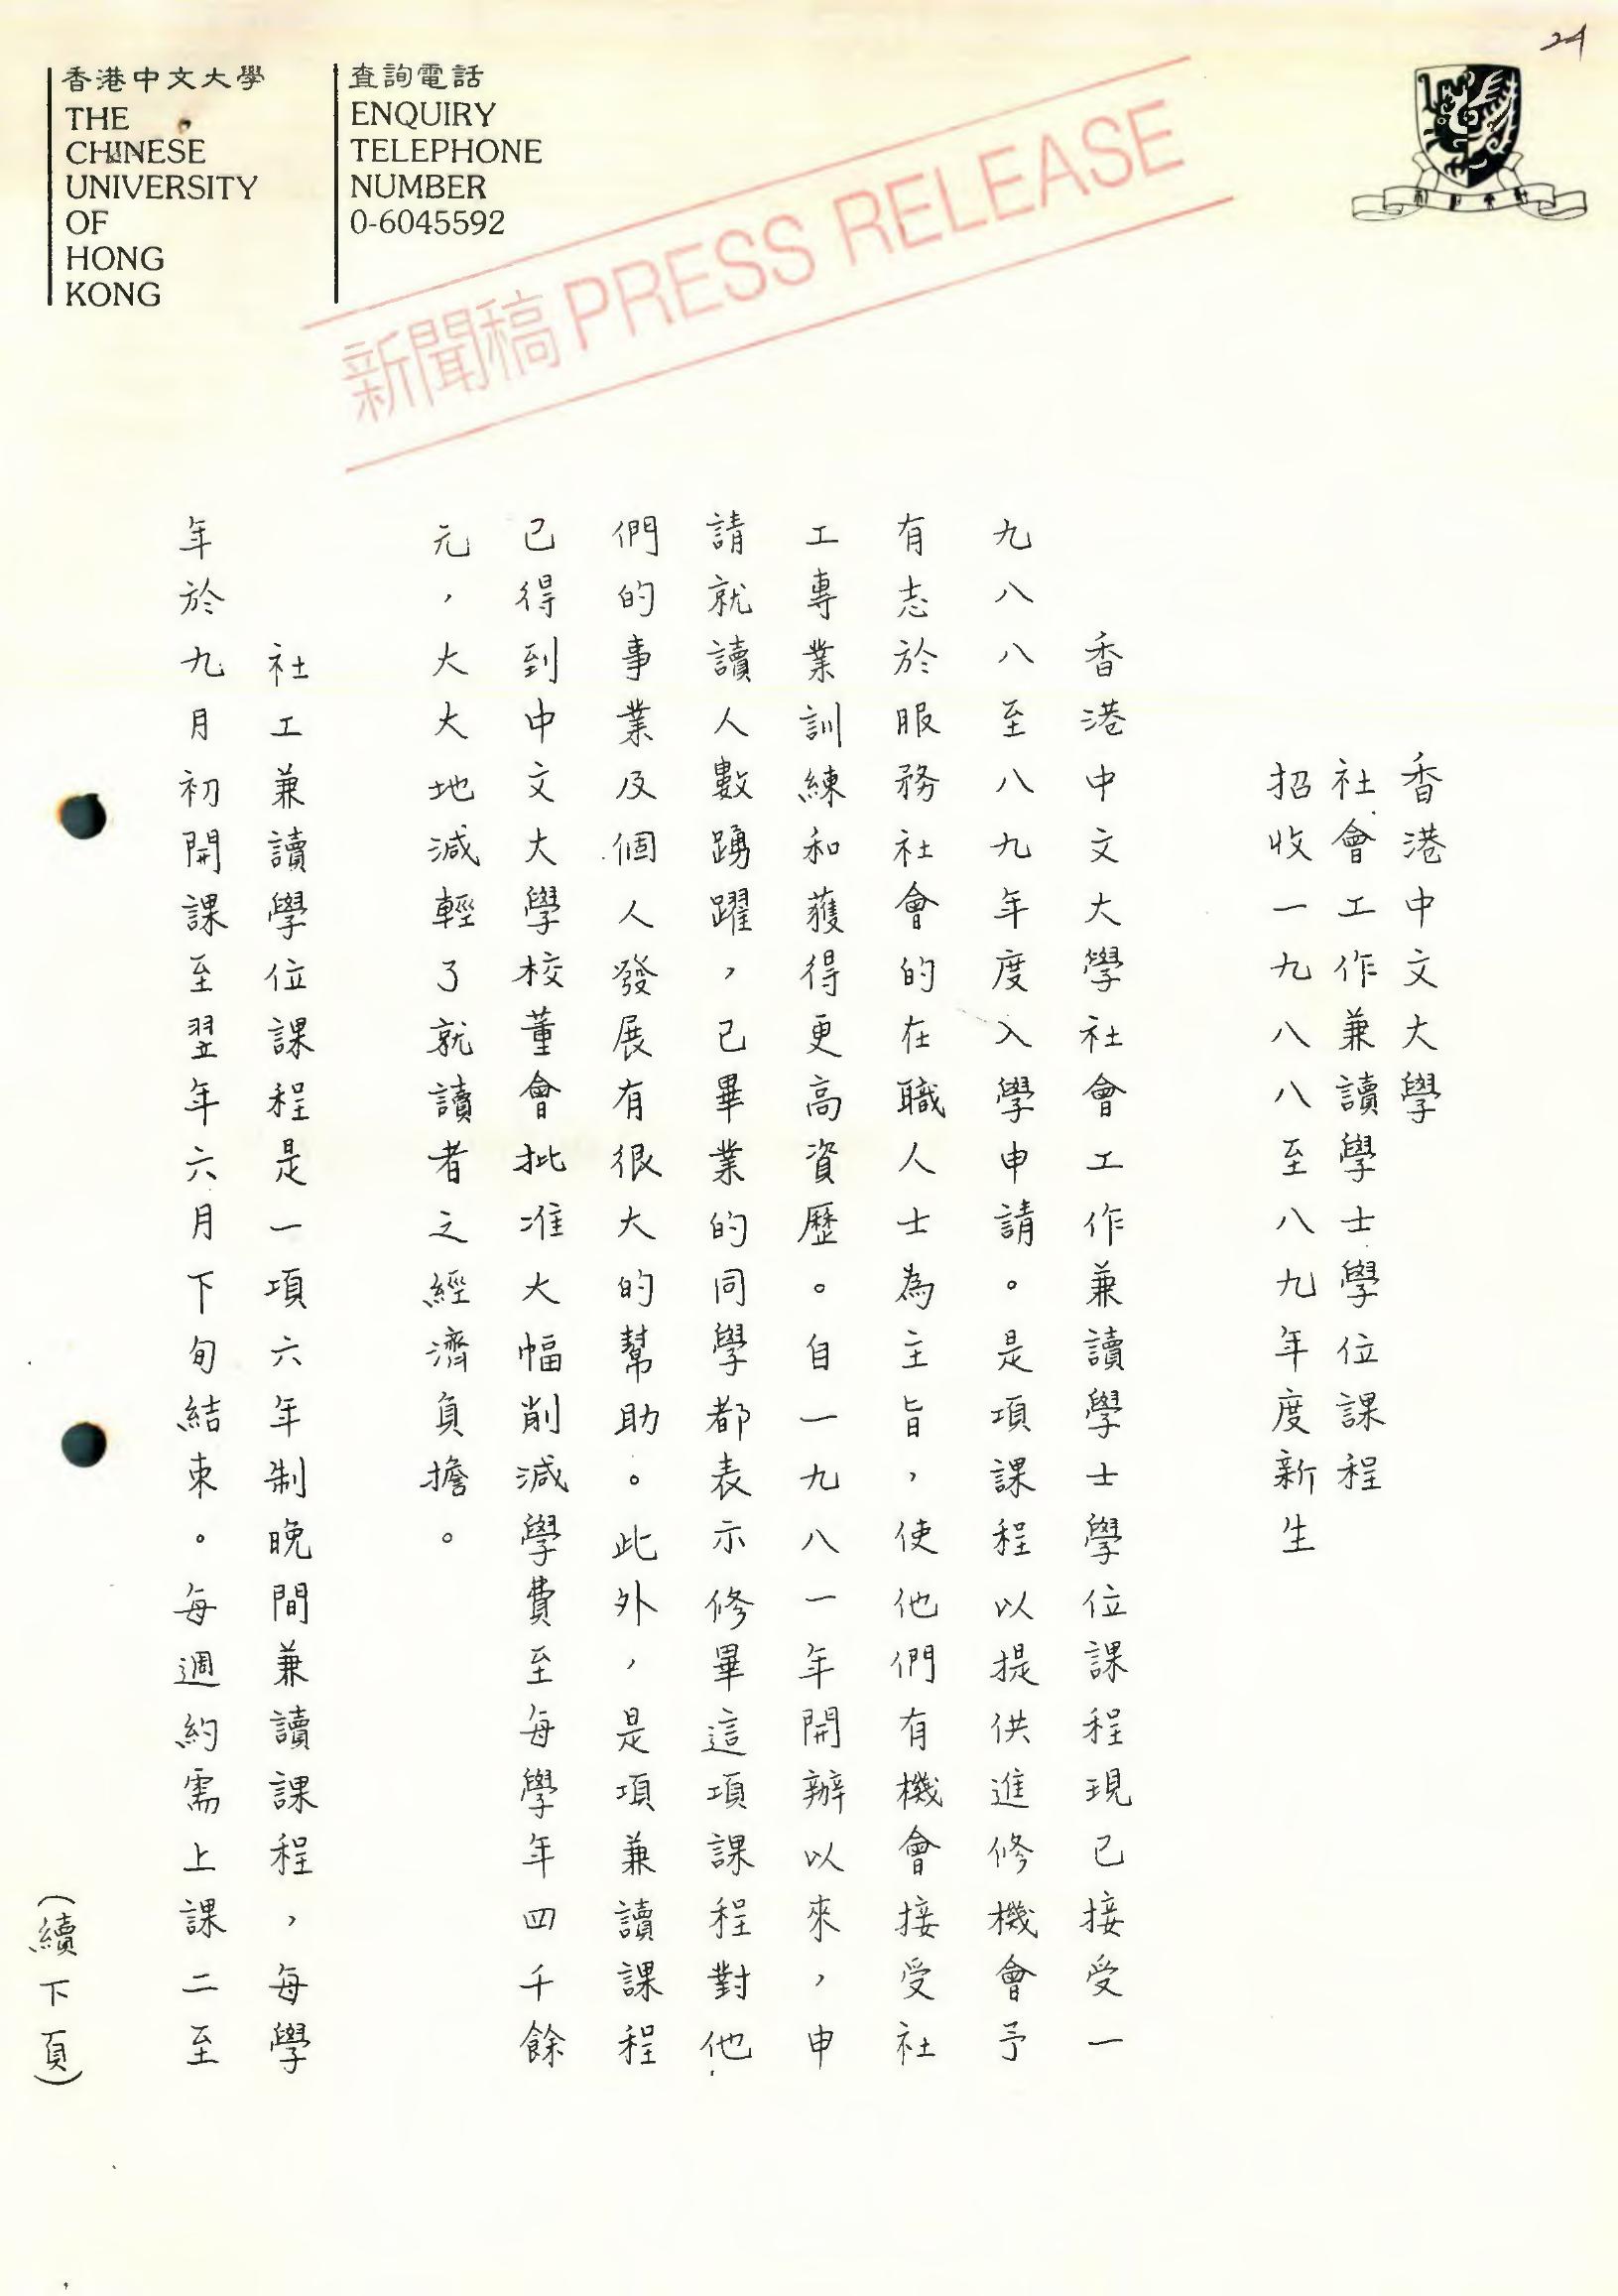 24
香港中文大學
THE
CHINESE
UNIVERSITY
OF
HONG
KONG
查詢電話
ENQUIRY
TELEPHONE
NUMBER
0-6045592
新聞稿 PRESS RELEASE
香港中文大學
社會工作兼讀學士學位課程
招收一九八八至八九年度新生
香港中文大學社會工作兼讀學士學位課程現已接受一
九八八至八九年度入學申請。是項課程以提供進修機會予
有志於服務社會的在職人士為主旨，使他們有機會接受社
工專業訓練和獲得更高資歷。自一九八一年開辦以來，申
請就讀人數踴躍，已畢業的同學都表示修畢這項課程對他
們的事業及個人發展有很大的幫助。此外，是項兼讀課程
已得到中文大學校董會批准大幅削減學費至每學年四千餘
元，大大地減輕了就讀者之經濟負擔。
社工兼讀學位課程是一項六年制晚間兼讀課程，每學
年於九月初開課至翌年六月下旬結束。每週約需上課二至
(續下頁)